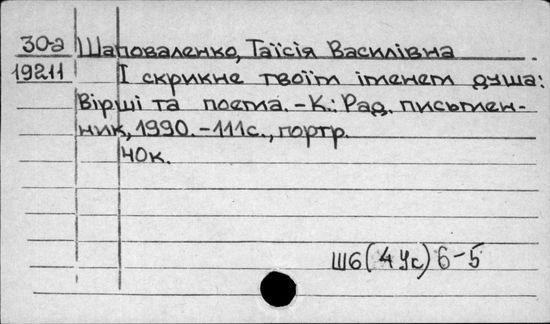 30-а Шаповаленко, Таїсія Василівна
19211 І скрикне твоїм іменем душа:
Вірші та поема. - К.: Рад. письмен-
ник, 1990. - 111с., портр.
40к.
Ш6(4Ук)6-5